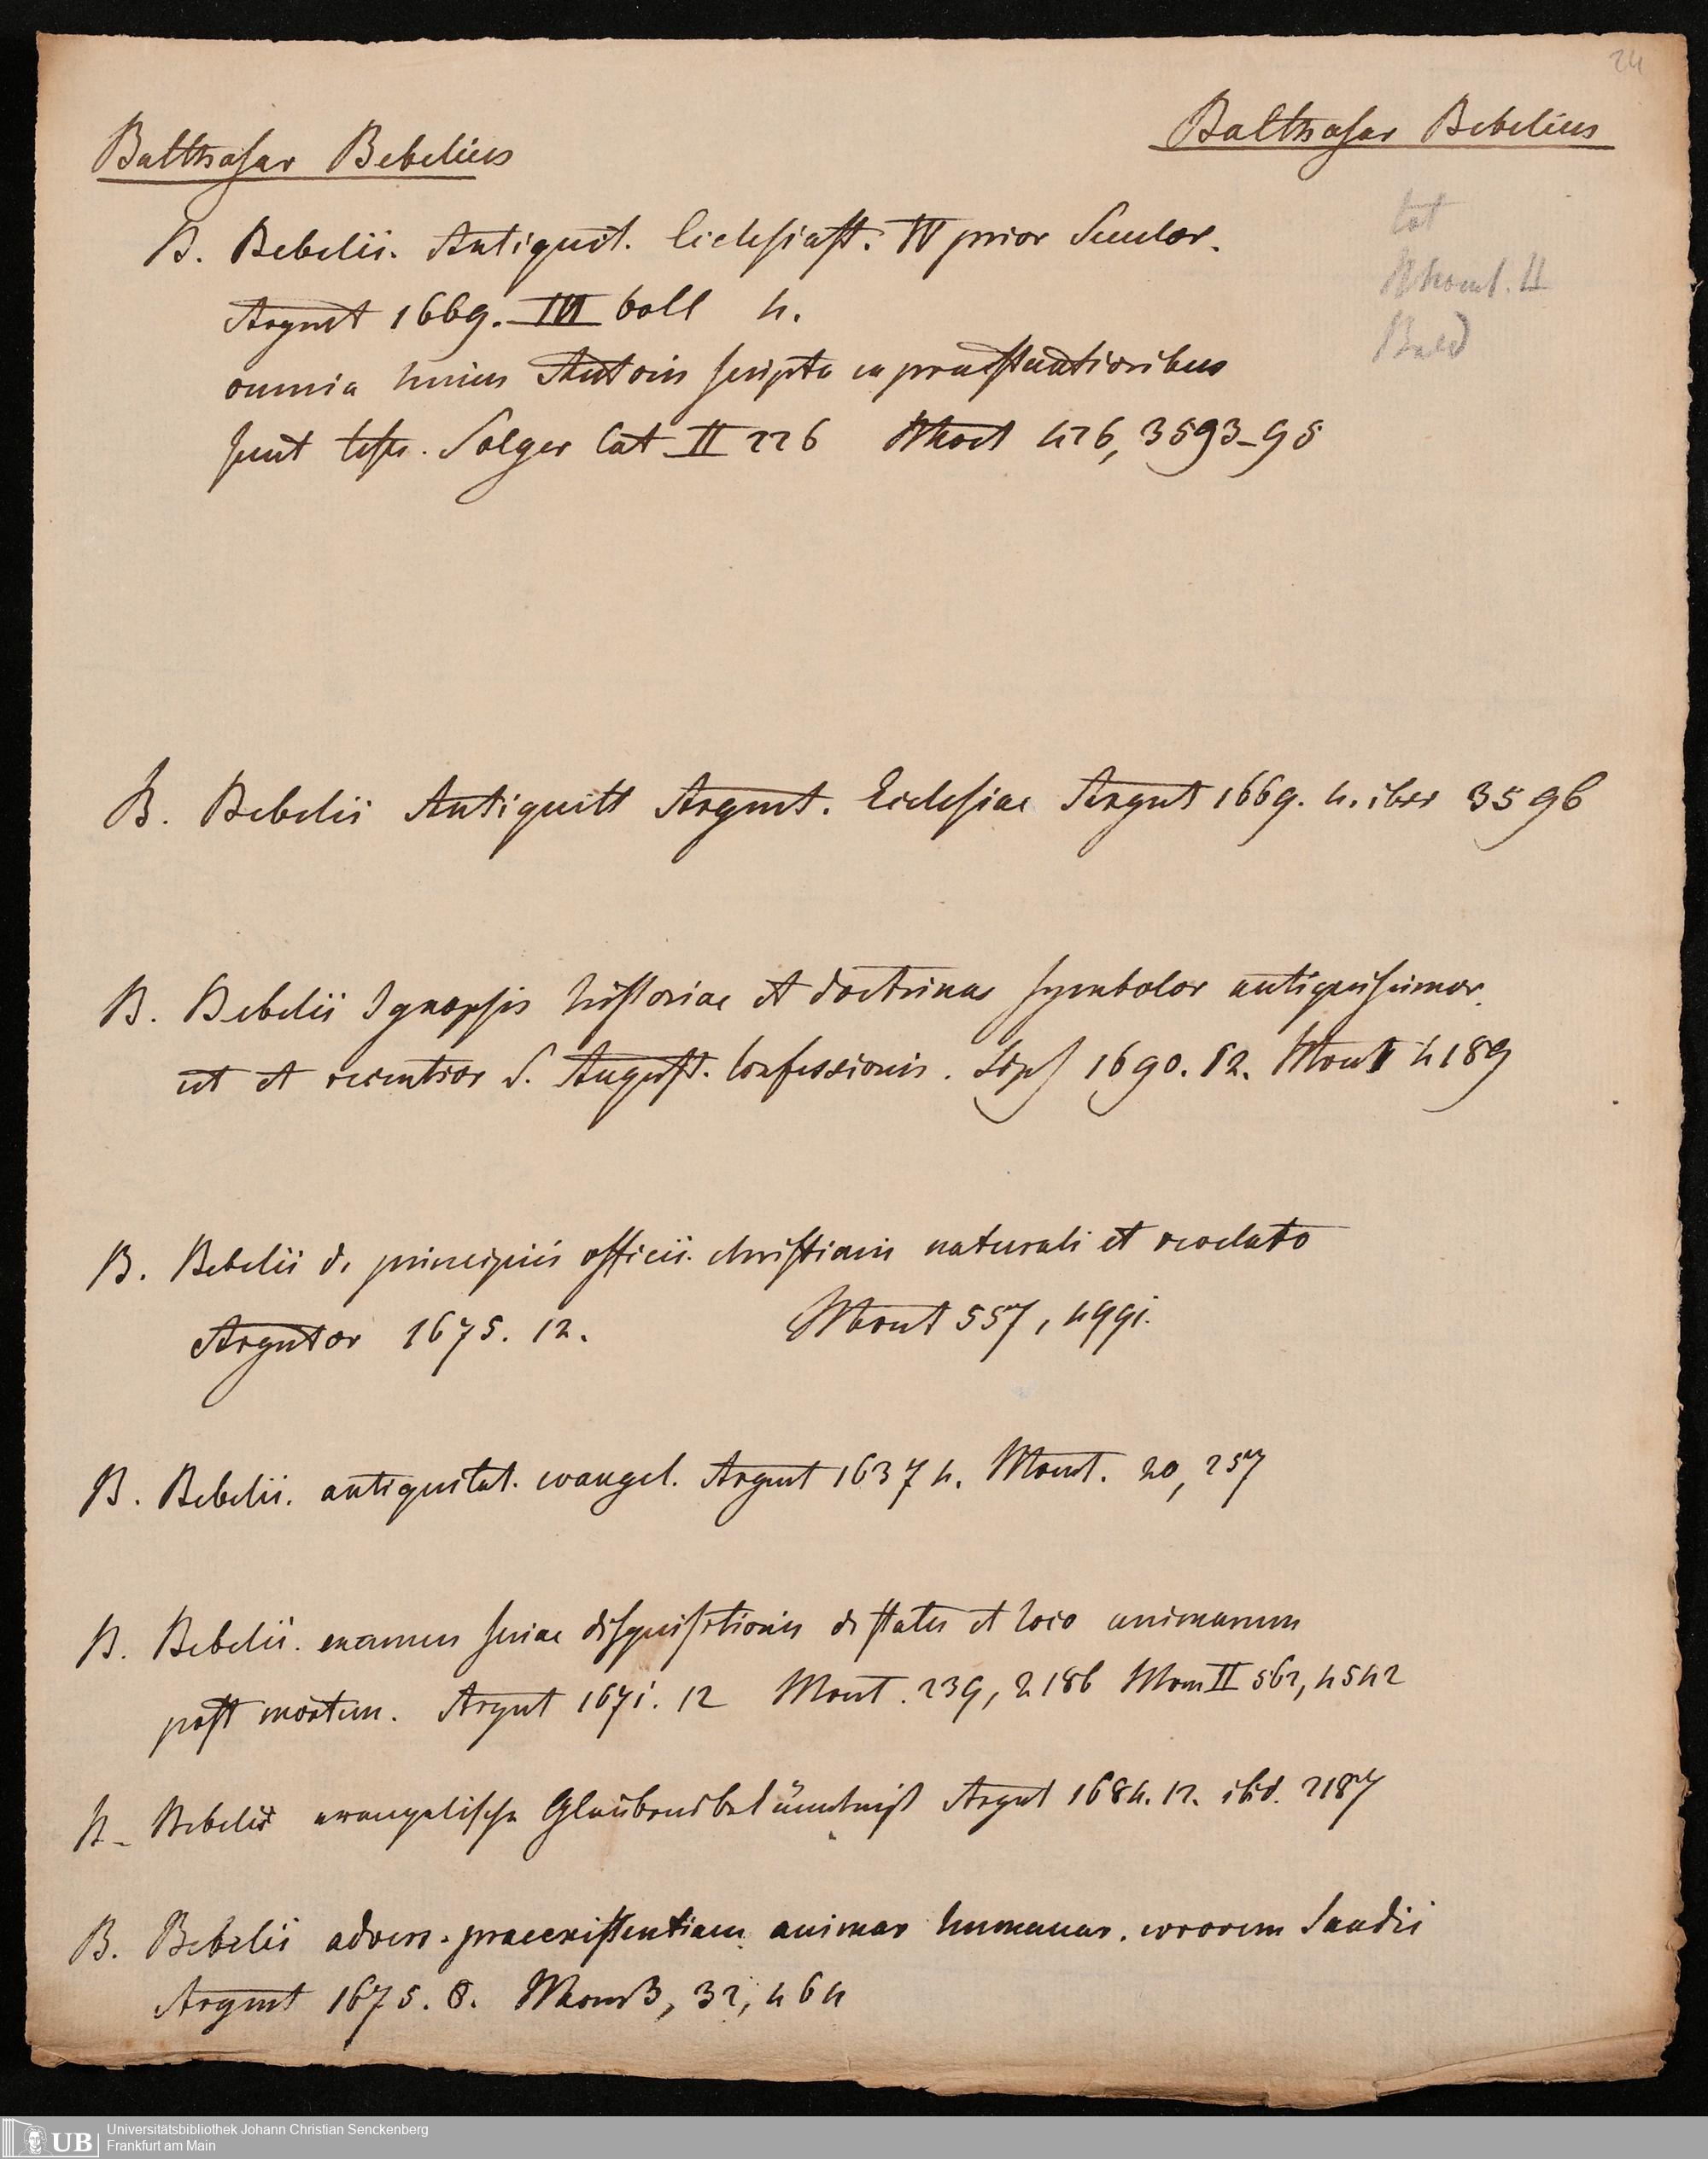 24
Balthasar Bebelius
Balthasar Bebelius
B. Bebelii. Antiquit. Ecclesiast. IV prior Secular.
Argent 1669. III Voll 4.
omnia huius Autoris scripta ex praestantioribus
sunt Solger Cat II 226 426, 3593-95
II
B. Bebelii Antiquitt Argent. Ecclesiae Argent 1669. 4. ibid 3596
B. Bebelii Synopsis historiae et doctrinae symbolor antiquissimor
ut et recentior S. August. Confessionis. Lips 1690. 12. 4189
B. Bebelii de principiis officii christiani naturali et revelato
Argentor 1675. 12. Mont 557, 4991.
B. Bebelii. antiquitat. evangel. Argent 1637 4. Mont. 20, 257
B. Bebelii. examen seriae disquisitionis de statu et loco animarum
post mortem. Argent 1671. 12 Mont. 239, 2186 II 562, 4542
B. Bebelii evangelische Glaubensbekänntniß Argent 1684. 12. ibid. 2187
B. Bebelii advers. praeexistentiam animar humanar. errorem Sandii
Argent 1675. 8. 3, 32, 464
UB
Universitätsbibliothek Johann Christian Senckenberg
Frankfurt am Main